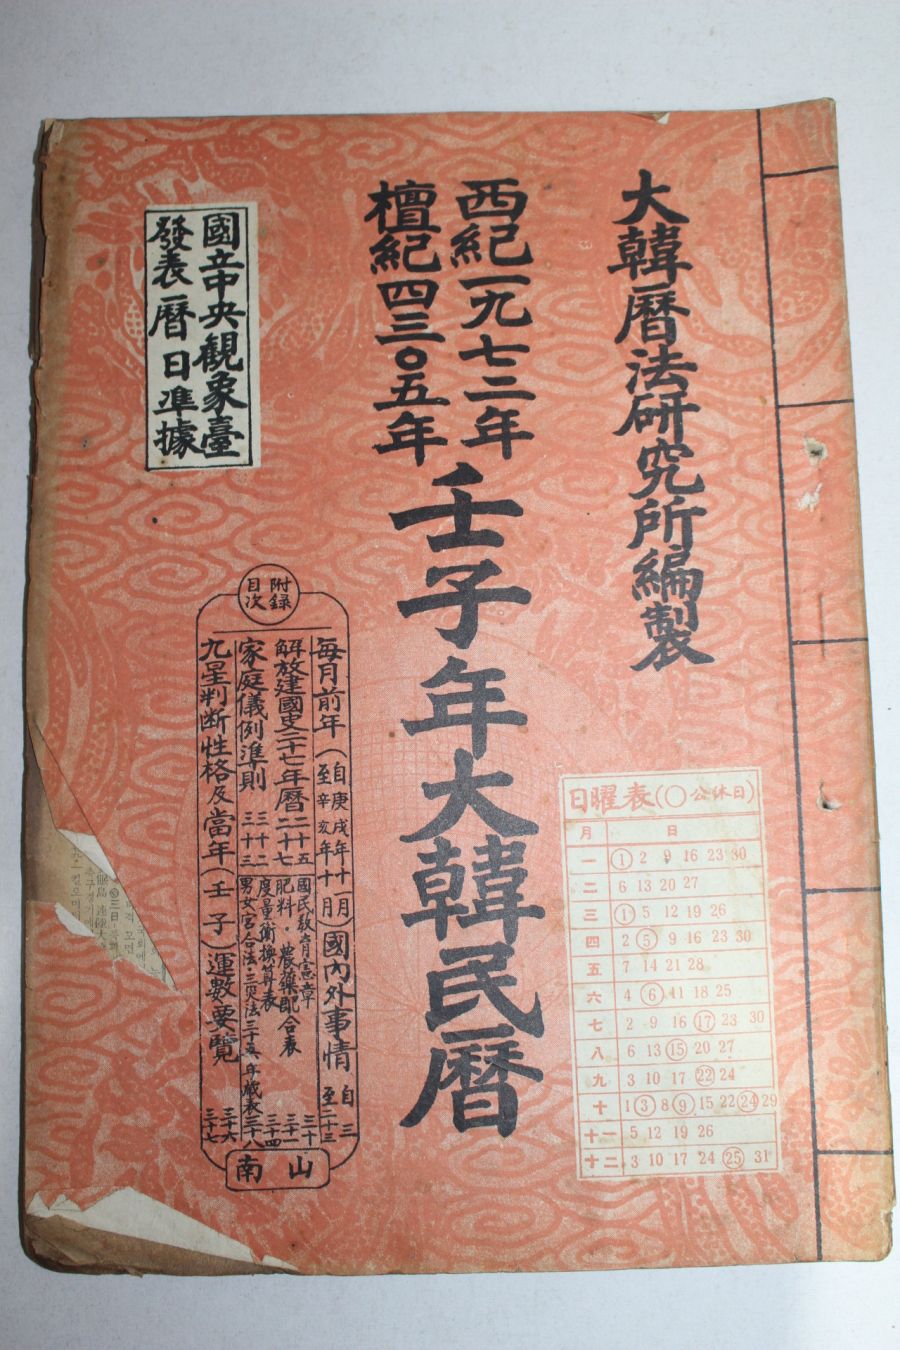 大韓曆法研究所編製
西紀一九七二年
檀紀四三〇五年
壬子年大韓民曆
國立中央觀象臺
發表曆日準據
附録
目次
每月前年(自庚戌年十一月
至辛亥年十月)國內外事情 自二
至二十三
解放建國史二十七年曆 二十五
二十七
國民敎育憲章 三十
肥料·農藥配合表 三十一
家庭儀例準則 三十二
三十三
度量衡換算表 三十四
男女宮合法·三災法 三十五·年歲表 三十八
九星判斷性格及當年(壬子)運數要覽 三十六
三十七
南山
日曜表(〇公休日)
月 日
一 ① 2 9 16 23 30
二 6 13 20 27
三 ① 5 12 19 26
四 2 ⑤ 9 16 23 30
五 7 14 21 28
六 4 ⑥ 11 18 25
七 2 9 16 ⑰ 23 30
八 6 13 ⑮ 20 27
九 3 10 17 ㉒ 24
十 1 ③ 8 ⑨ 15 22 ㉔ 29
十一 5 12 19 26
十二 3 10 17 24 ㉕ 31